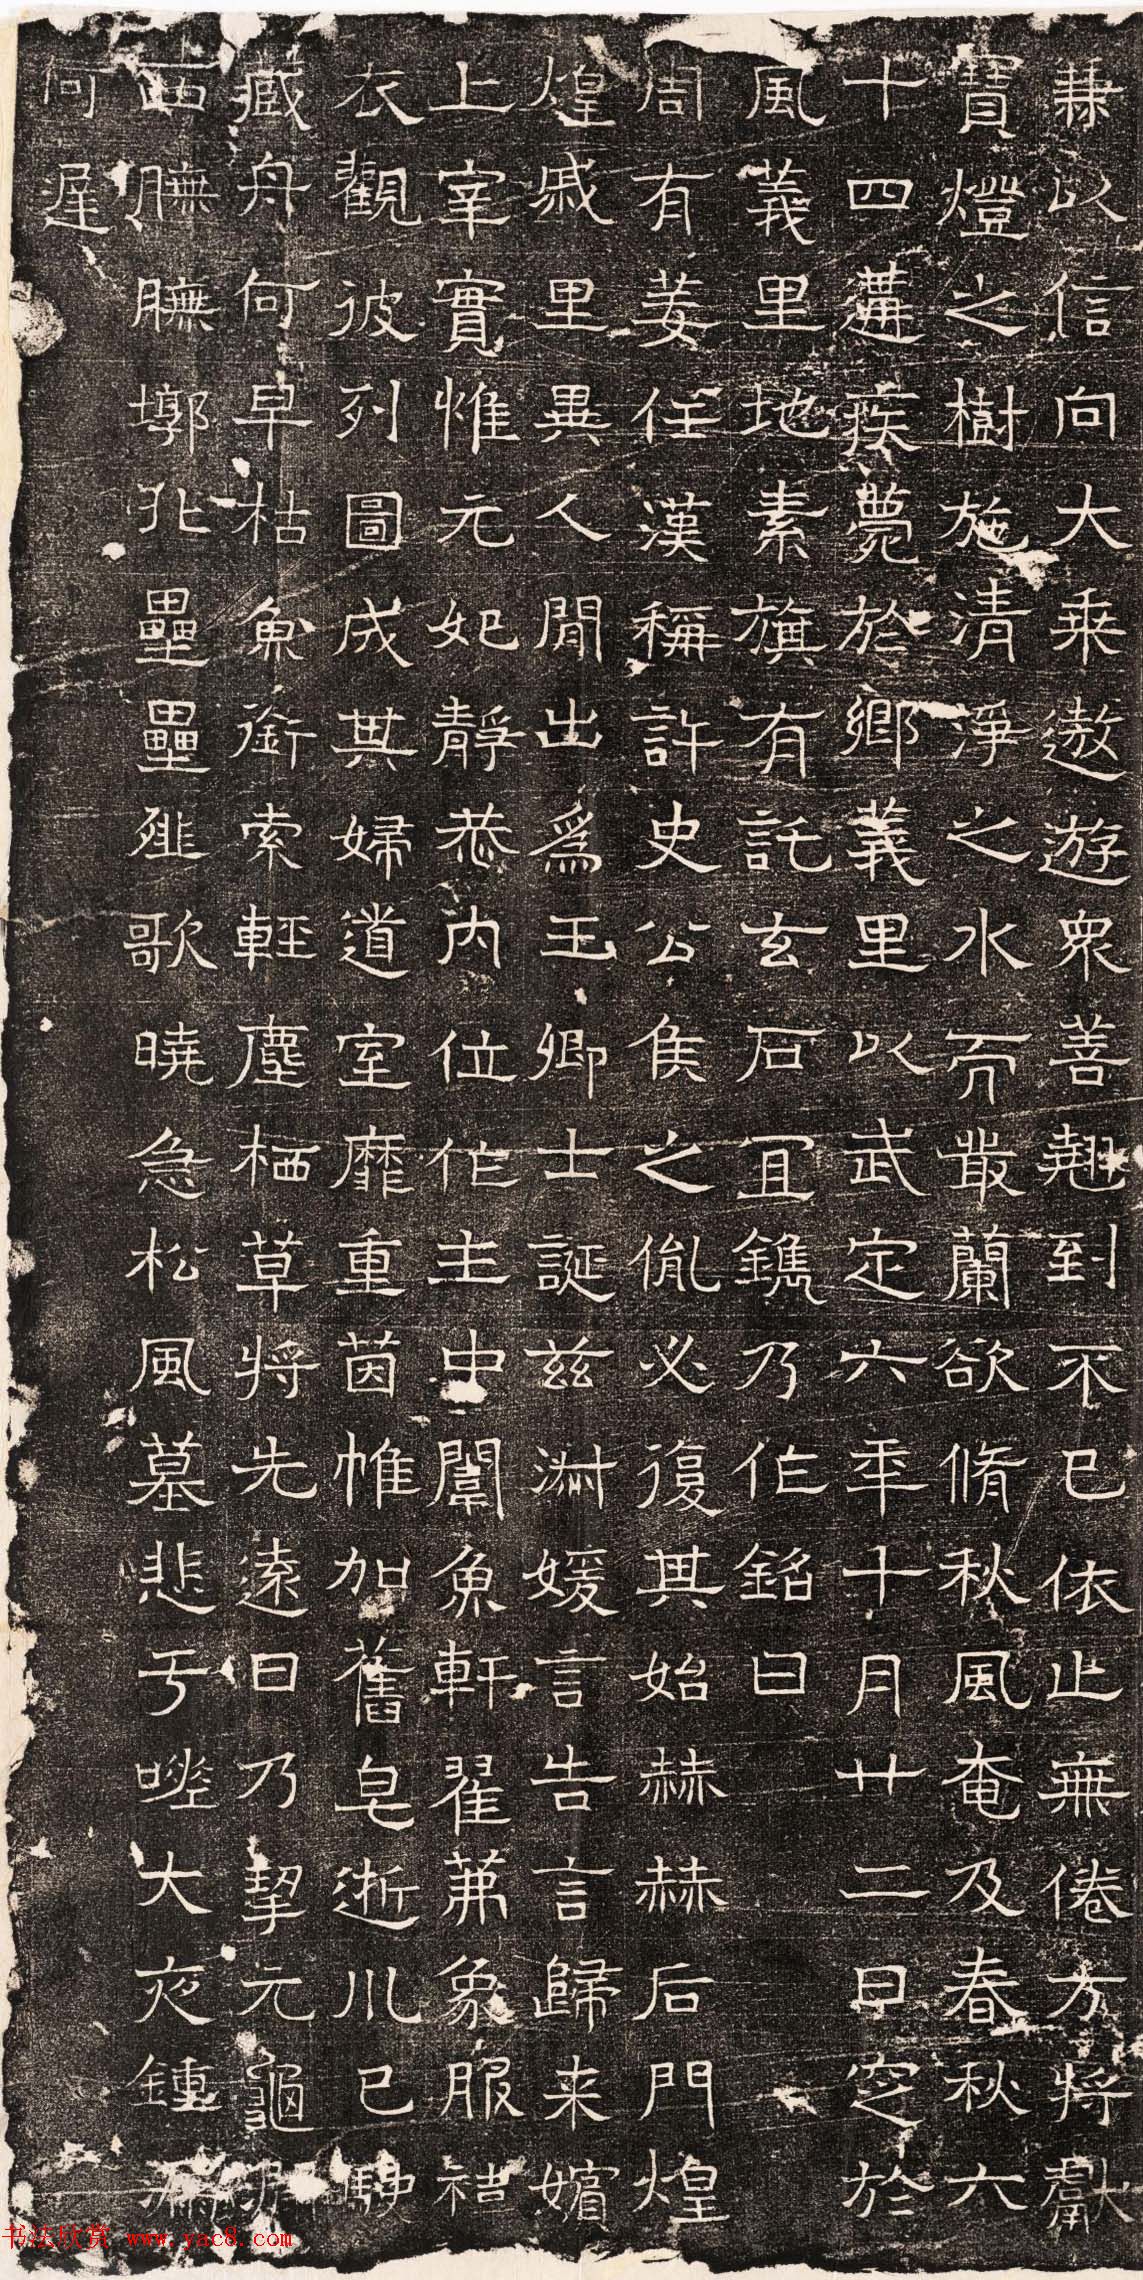 兼以信向大乘遨遊眾善翹到不已依止無倦方將獻
寶燈之樹施清淨之水而叢蘭欲脩秋風奄及春秋六
十四遘疾薨於鄉義里以武定六年十月廿二日窆於
風義里地素旗有託玄石宜鐫乃作銘曰
周有姜任漢稱許史公侯之胤必復其始赫赫后門煌
煌戚里異人閒出為王卿士誕茲淑媛言告言歸来嬪
上宰實惟元妃靜恭內位作主中闈魚軒翟茀象服
衣觀彼列圖成其婦道室靡重茵帷加舊皂逝川已駛
藏舟何早枯魚銜索輕塵栖草將先遠日乃挈元龜
西膴膴墎北壘壘薤歌曉急松風暮悲于嗟大夜鍾漏
何遲
书法欣赏 www.yac8.com